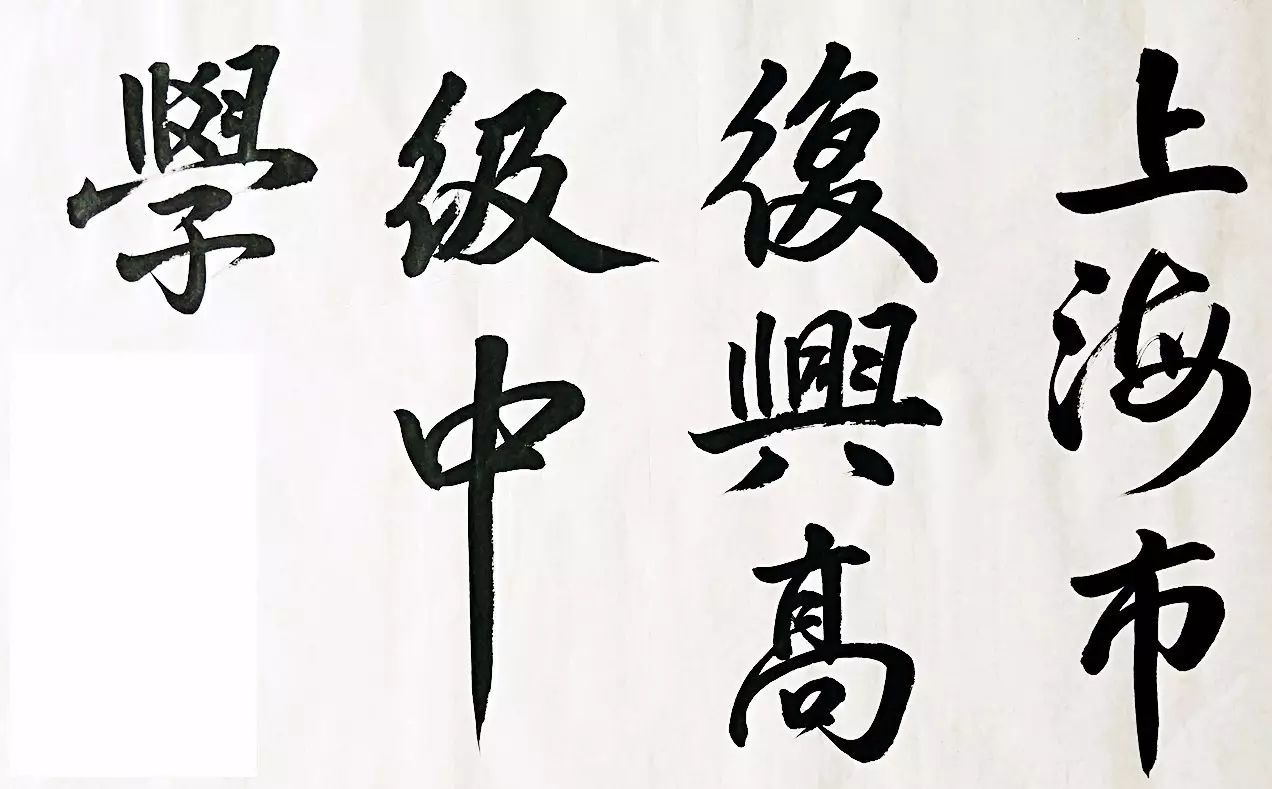 上海市
復興高
級中
學